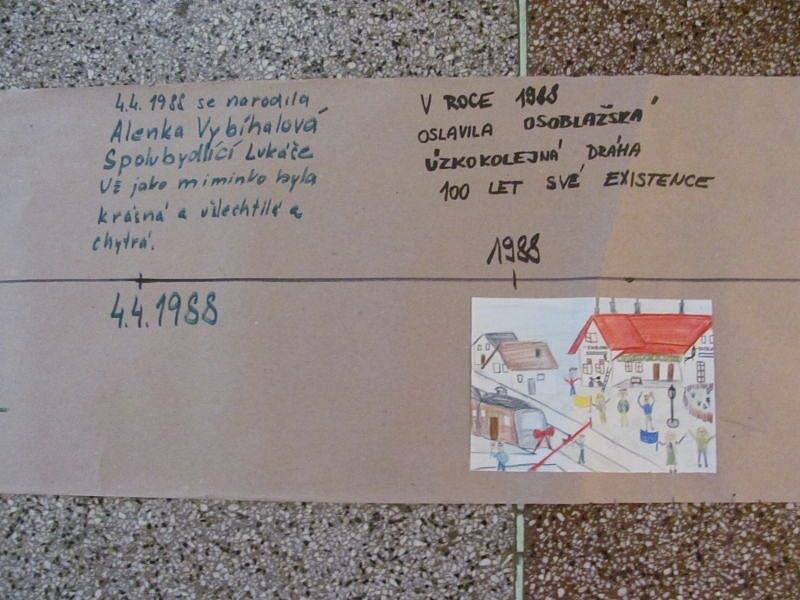 4.4. 1988 se narodila
Alenka Vybíhalová
Spolubydlící Lukáče
Už jako miminko byla
krásná a ušlechtilá a
chytrá.
4.4.1988
V ROCE 1988
OSLAVILA OSOBLAŽSKÁ
ÚZKOKOLEJNÁ DRÁHA
100 LET SVÉ EXISTENCE
1988